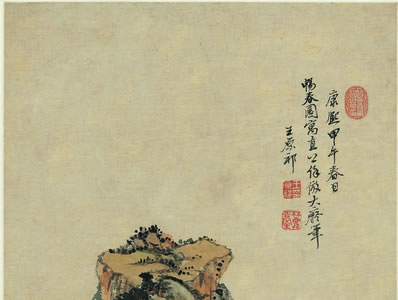 康熙甲午春日
暢春園寓直公餘倣大癡筆
王原祁